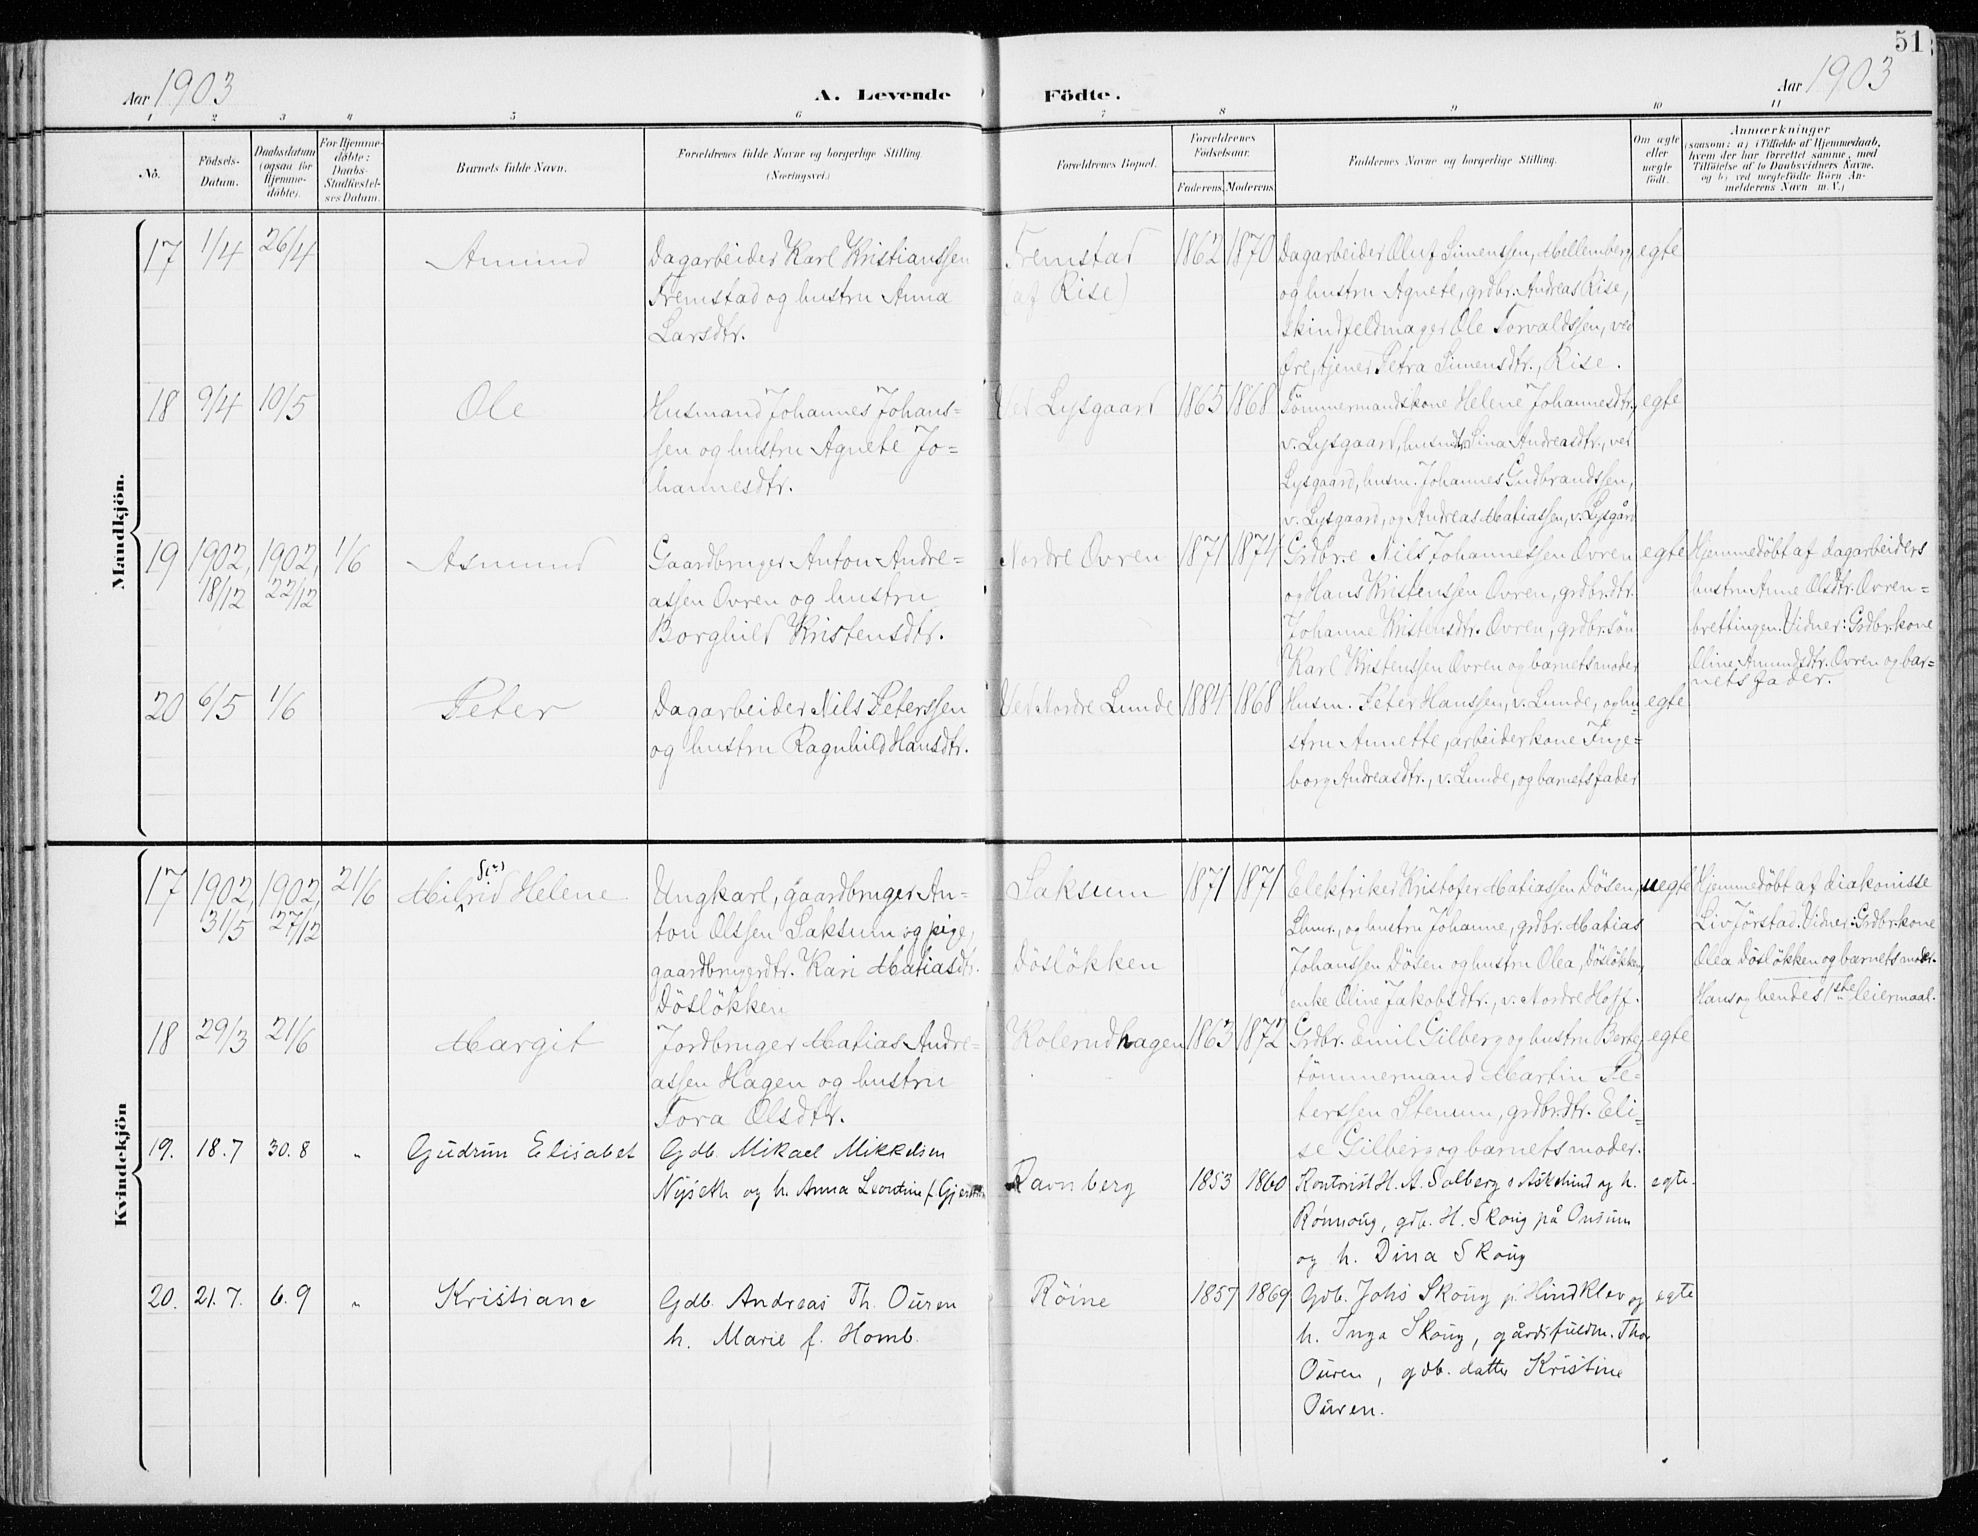 51
Aar 1903
A. Levende
Födte.
Aar 1903
1 2 3 4 5 6 7 8 9 10 11
No.
Födsels-
Datum.
Daabsdatum
(ogsaa for
Hjemme-
döbte).
For Hjemme-
döbte:
Daabs-
Stadfæstel-
ses Datum.
Barnets fulde Navn.
Forældrenes fulde Navne og borgerlige Stilling.
(Næringsvei.)
Forældrenes Bopæl.
Forældrenes
Födselsaar.
Faderens. Moderens.
Faddernes Navne og borgerlige Stilling.
Om ægte
eller
uægte
födt.
Anmærkninger
(saasom: a) i Tilfælde af Hjemmedaab,
hvem der har forrettet samme, med
Tilföielse af to Daabsvidners Navne.
og b) ved uægtefödte Börn An-
melderens Navn m. V.)
Mandkjön.
17 1/4 26/4
Amund
Dagarbeider Karl Kristianssen
Fremstad og hustru Anna
Larsdtr.
Fremstad
(af Rise)
1862 1870
Dagarbeider Oluf Simenssen, Mellemberg
og hustru Agnete, grdbr. Andreas Rise,
skindfeldmager Ole Torvaldssen, ved
Øre, tjener Petra Simensdtr., Rise.
egte
18 9/4 10/5
Ole
Husmand Johannes Johans=
sen og hustru Agnete Jo=
hannesdtr.
Ved Lysgaard
1865 1868
Tömmermandskone Helene Johannesdtr.,
v. Lysgaard, husmdtr. Sina Andreasdtr., ved
Lysgaard, husm. Johannes Gudbrandssen,
v. Lysgaard, og Andreas Matiassen, v. Lysgård
egte
19 1902, 1902, 1/6
18/12 22/12
Asmund
Gaardbruger Anton Andre=
assen Ovren og hustru
Borghild Kristensdtr.
Nordre Ovren
1871 1874
Grdbr.e Nils Johannessen Ovren
og Hans Kristenssen Ovren, grdbr.dtr.
Johanne Kristensdtr. Ovren, grdbr.sön
Karl Kristenssen Ovren og barnets moder
egte
Hjemmedöbt af dagarbeiders
hustru Anne Olsdtr. Ovren=
brettingen. Vidner: Grdbr.kone
Oline Amundsdtr. Ovren og bar=
nets fader.
20 6/5 1/6
Peter
Dagarbeider Nils Peterssen
og hustru Ragnhild Hansdtr.
Ved Nordre Lunde
1884 1868
Husm. Peter Hanssen, v. Lunde, og hu=
stru Annette, arbeiderkone Inge=
borg Andreasdtr., v. Lunde, og barnets fader
egte
Kvindekjön
17 1902, 1902, 21/6
31/5 27/12
Milrid Helene
Ungkarl, gaardbruger An=
ton Olssen Saksum og pige,
gaardbrugerdtr. Kari Matiasdtr.
Döslökken
Saksum
Döslökken
1871 1871
Elektriker Kristofer Matiassen Dösen,
Lhmr., og hustru Johanne, grdbr. Matias
Johanssen Dösen og hustru Olea, Döslökken,
enke Oline Jakobsdtr., v. Nordre Hoff.
uegte
Hjemmedöbt af diakonisse
Liv Jörstad. Vidner: Grdbr.kone
Olea Döslökken og barnets moder.
Hans og hendes 1ste leiermaal.
18 29/3 21/6
Margit
Jordbruger Matias Andre=
assen Hagen og hustru
Tora Olsdtr.
Kolerudhagen
1863 1872
Grdbr. Emil Gilberg og hustru Berte,
tömmermand Martin Pe=
terssen Stenum, grdbr.dtr. Eli=
se Gilberg og barnets moder.
egte
19. 18.7 30.8 "
Gudrun Elisabet
Gdb. Mikael Mikkelsen
Nyseth og h. Anna Leontine f.
Ravnberg
1853 1860
Kontorist H. A. Solberg s Askelund og h.
Rönnaug, gdb. H. Skoug på Onsum
og h. Dina Skoug
egte.
20. 21.7. 6.9 "
Kristiane
Gdb. Andreas Th. Ouren
h. Marie f. Homb.
Röine
1857 1869
Gdb. Johs Skoug p. Hindklev og
h. Inga Skoug, gårdsfuldm. Tho
Ouren, gdb. datter Kristine
Ouren.
egte